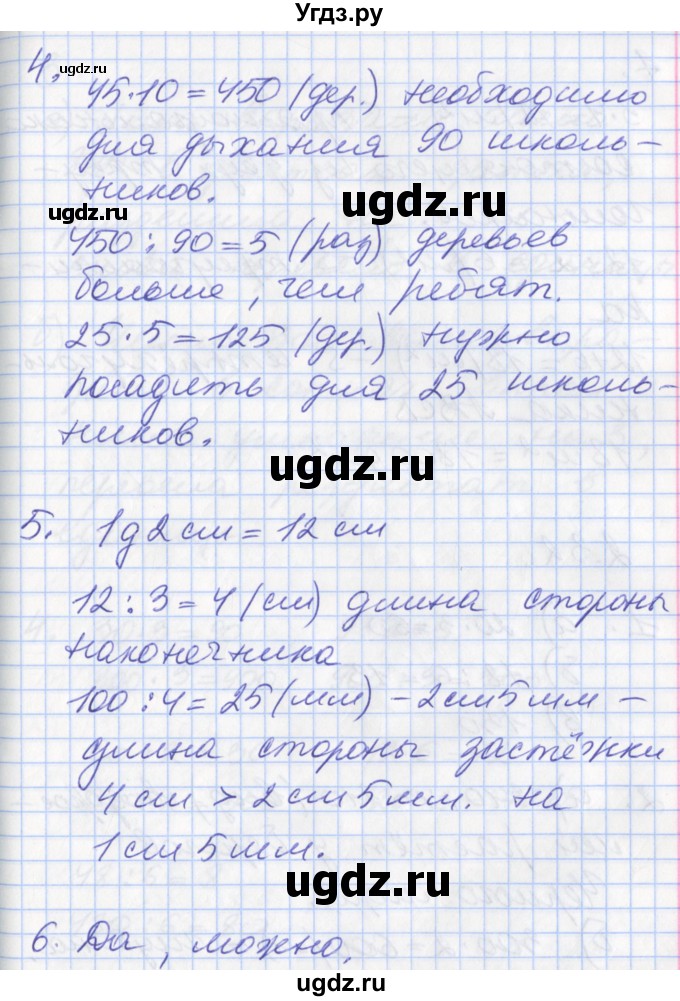 Угдз.ру
4. 45·10=450 (дер.) необходимо
ugdz.ru
для дыхания 90 школь-
ников.
ugdz.ru
ugdz.ru
450:90=5 (раз) деревьев
больше, чем ребят.
25·5=125 (дер.) нужно
посадить для 25 школь-
ников.
ugdz.ru
5. 1д 2см = 12 см
12:3=4 (см) длина стороны
наконечника
100:4=25 (мм) – 2см 5мм –
длина стороны застёжки
4 см > 2 см 5 мм. на
1 см 5 мм.
ugdz.ru
6. Да, можно.
ugdz.ru